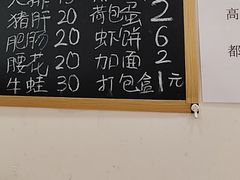 猪肝 20 荷包蛋 2
肥肠 20 虾饼 6
腰花 20 加面 2
牛蛙 30 打包盒 1元
高
都